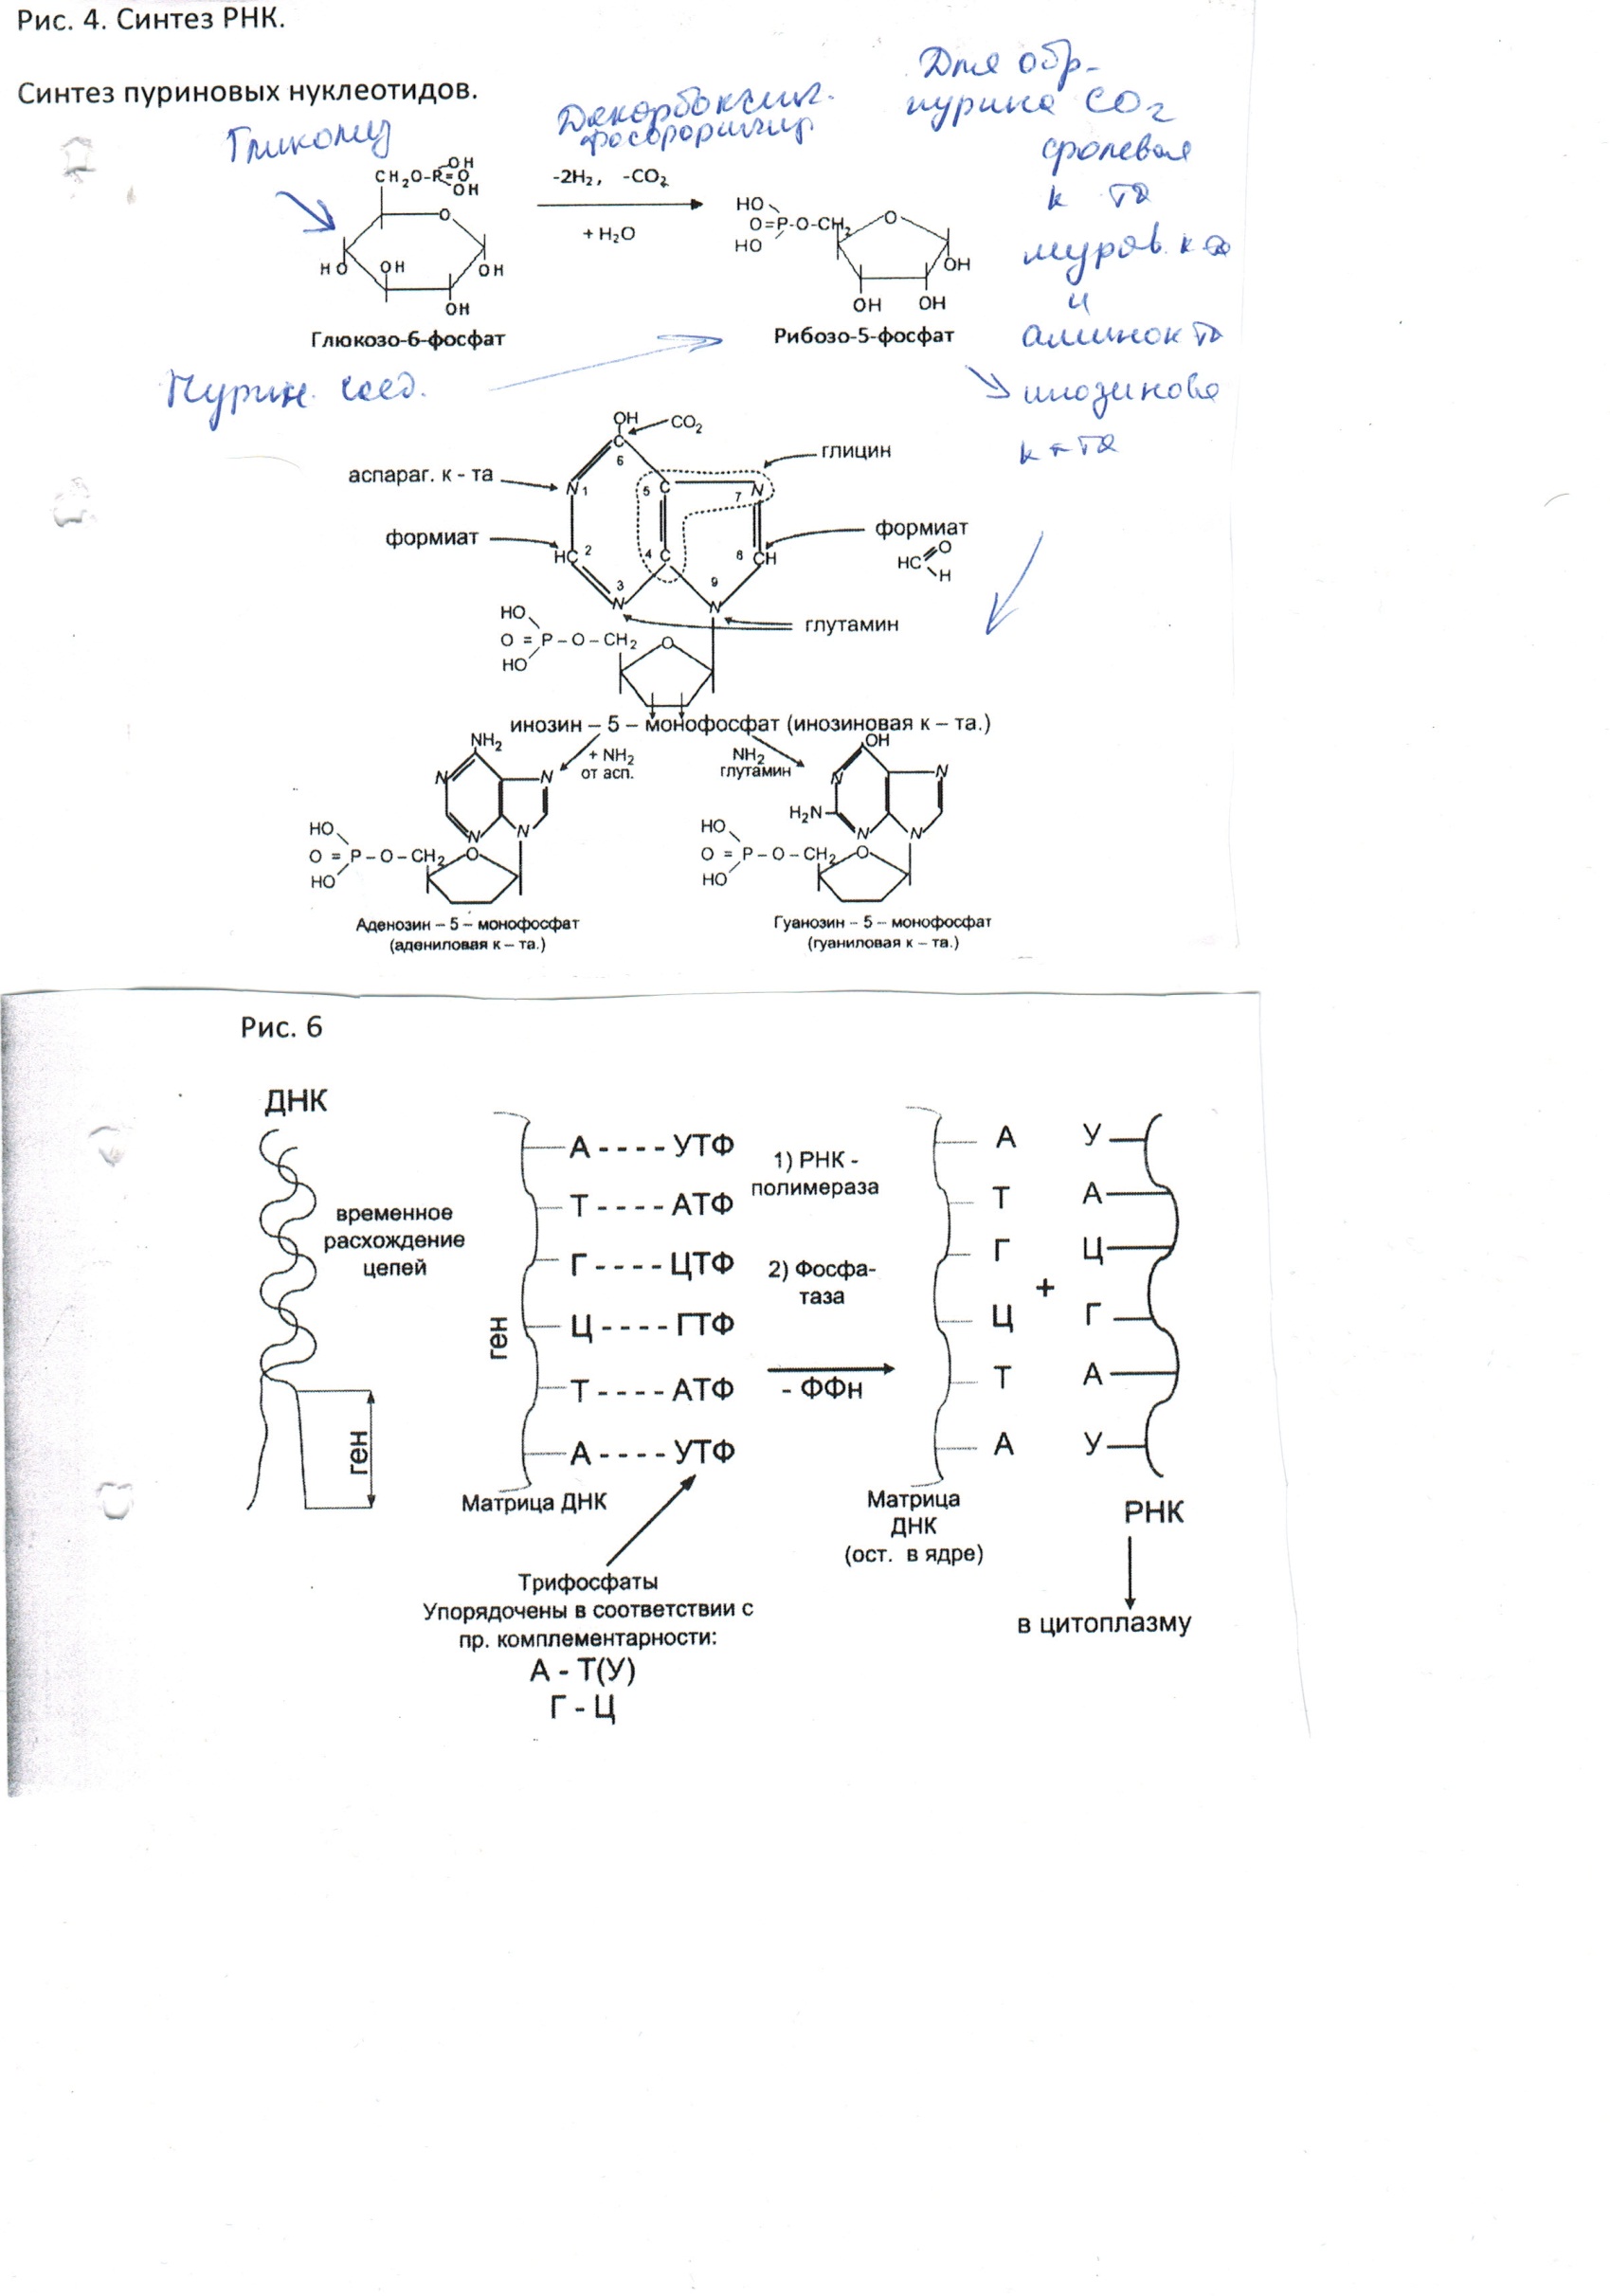 Рис. 4. Синтез РНК.
Синтез пуриновых нуклеотидов.
Для обр-
пурина CO2
фолевая
к та
мурав. к та
и
аминок та
инозинова
к-та
Декарбоксил.
фосфорилир
CH2O-P=O
OH
OH
O
HO
OH
OH
OH
Глюкозо-6-фосфат
-2H2, -CO2
+ H2O
HO
O=P-O-CH2
HO
O
OH
OH
OH
Рибозо-5-фосфат
Пурин. соед.
OH
CO2
C
6
глицин
аспараг. к - та
N 1
5 C
7 N
формиат
HC 2
4 C
8 CH
формиат
HC
O
H
3
N
9
N
глутамин
HO
O = P – O – CH2
HO
O
инозин – 5 – монофосфат (инозиновая к – та.)
NH2
+ NH2
от асп.
NH2
глутамин
OH
N
N
N
N
N
N
H2N
N
N
HO
O = P – O – CH2
HO
O
HO
O = P – O – CH2
HO
O
Аденозин – 5 – монофосфат
(адениловая к – та.)
Гуанозин – 5 – монофосфат
(гуаниловая к – та.)
Рис. 6
ДНК
временное
расхождение
цепей
ген
ген
А - - - - УТФ
Т - - - - АТФ
Г - - - - ЦТФ
Ц - - - - ГТФ
Т - - - - АТФ
А - - - - УТФ
Матрица ДНК
1) РНК -
полимераза
2) Фосфа-
таза
- ФФн
А У
Т А
Г Ц
+
Ц Г
Т А
А У
Матрица
ДНК
(ост. в ядре)
РНК
в цитоплазму
Трифосфаты
Упорядочены в соответствии с
пр. комплементарности:
А - Т(У)
Г - Ц